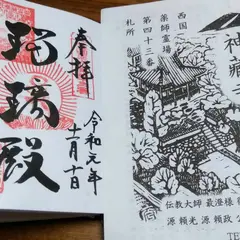 奉拝
瑠璃殿
令和元年
十一月十日
西国
薬師霊場
第四十三番
札所
神蔵寺
伝教大師 最澄様
源頼光 源頼政公
TE